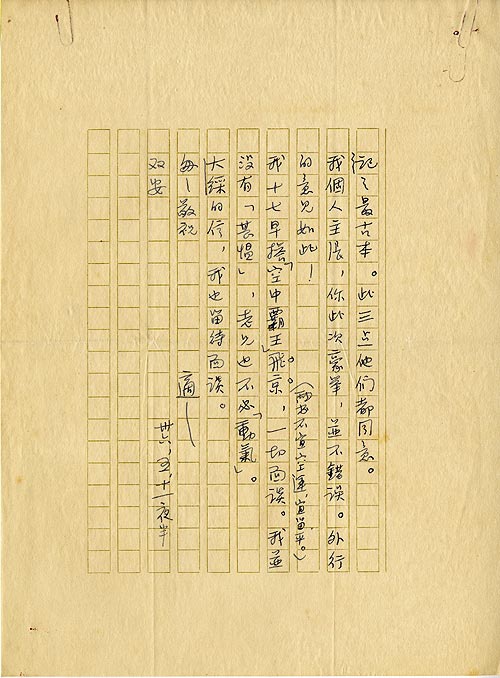 記之最古本。此三点他們都同意。
我個人主張，你此次豪舉，並不錯誤。外行
的意見如此！（兩書不宜空運，宜留平。）
我十七早搭「空中霸王」飛京。，一切面談。我並
没有「甚愠」，老兄也不必「動氣」。
大綵的信，我也留待面談。
匆匆敬祝
双安
適
卅六，五，十一夜半